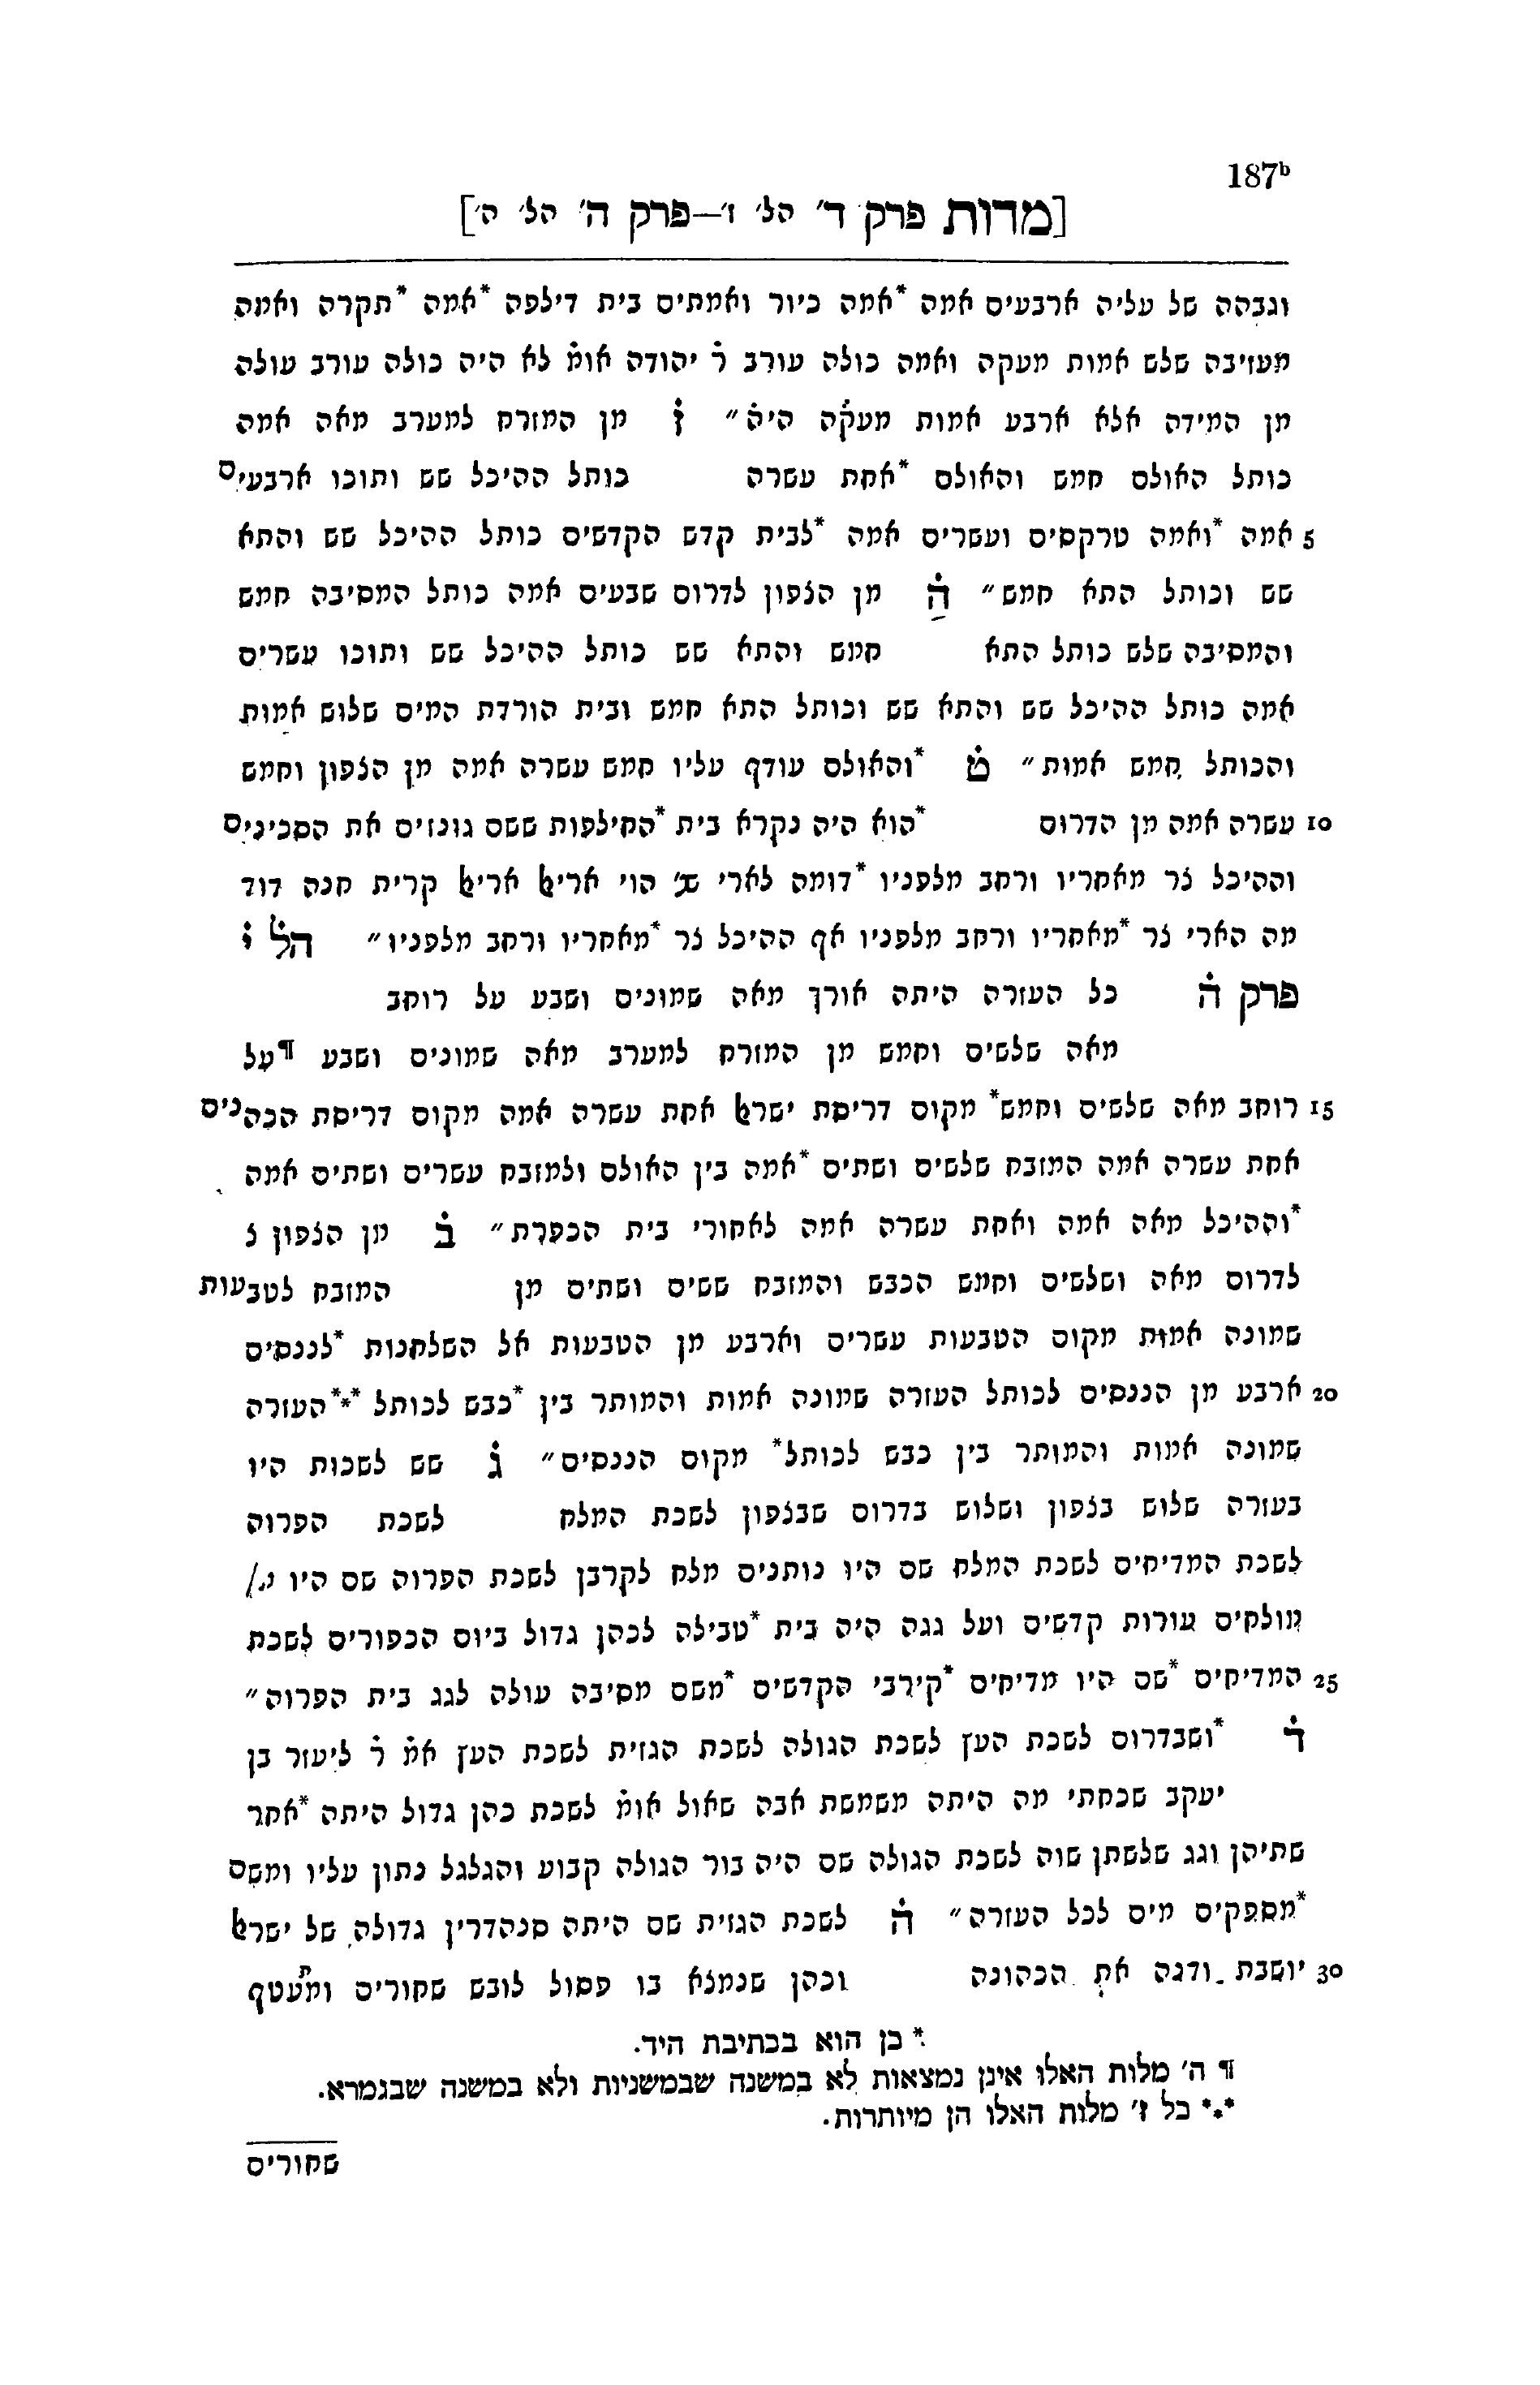 187b
[מדות פרק ד' הל' ז'—פרק ה' הל' ה']
וגבהה של עליה ארבעים אמה *אמה כיור ואמתים בית דילפה *אמה *תקרה ואמה
מעזיבה שלש אמות מעקה ואמה כולה עורב ר̇ יהודה אומ̇ לא היה כולה עורב עולה
מן המידה אלא ארבע אמות מעקה היה״ ז̇ מן המזרח למערב מאה אמה
כותל האולם חמש והאולם *אחת עשרה כותל ההיכל שש ותוכו ארבעים
5 אמה *ואמה טרקסים ועשרים אמה *לבית קדש הקדשים כותל ההיכל שש והתא
שש וכותל התא חמש״ ה̇ מן הצפון לדרום שבעים אמה כותל המסיבה חמש
והמסיבה שלש כותל התא חמש והתא שש כותל ההיכל שש ותוכו עשרים
אמה כותל ההיכל שש והתא שש וכותל התא חמש ובית הורדת המים שלוש אמות
והכותל חמש אמות״ ט̇ *והאולם עודף עליו חמש עשרה אמה מן הצפון וחמש
10 עשרה אמה מן הדרום *הוא היה נקרא בית *החילפות ששם גונזים את הסכינים
וההיכל צר מאחריו ורחב מלפניו *דומה לארי שנ׳ הוי אריאל אריאל קרית חנה דוד
מה הארי צר *מאחריו ורחב מלפניו אף ההיכל צר *מאחריו ורחב מלפניו״ הל̇ י̇
פרק ה̇ כל העזרה היתה אורך מאה שמונים ושבע על רוחב
מאה שלשים וחמש מן המזרח למערב מאה שמונים ושבע ¶על
15 רוחב מאה שלשים וחמש* מקום דריסת ישראל אחת עשרה אמה מקום דריסת הכהנים
אחת עשרה אמה המזבח שלשים ושתים *אמה בין האולם ולמזבח עשרים ושתים אמה
*וההיכל מאה אמה ואחת עשרה אמה לאחורי בית הכפרת״ ב̇ מן הצפון ל
לדרום מאה ושלשים וחמש הכבש והמזבח ששים ושתים מן המזבח לטבעות
שמונה אמות מקום הטבעות עשרים וארבע מן הטבעות אל השלחנות *לננסים
20 ארבע מן הננסים לכותל העזרה שמונה אמות והמותר בין *כבש לכותל ***העזרה
שמונה אמות והמותר בין כבש לכותל* מקום הננסים״ ג̇ שש לשכות היו
בעזרה שלוש בצפון ושלוש בדרום שבצפון לשכת המלח לשכת הפרוה
לשכת המדיחים לשכת המלח שם היו נותנים מלח לקרבן לשכת הפרוה שם היו
מולחים עורות קדשים ועל גגה היה בית *טבילה לכהן גדול ביום הכפורים לשכת
25 המדיחים *שם היו מדיחים *קירבי הקדשים *משם מסיבה עולה לגג בית הפרוה״
ד̇ *ושבדרום לשכת העץ לשכת הגולה לשכת הגזית לשכת העץ אמ̇ ר̇ ליעזר בן
יעקב שכחתי מה היתה משמשת אבה שאול אומ̇ לשכת כהן גדול היתה *אחר
שתיהן וגג שלשתן שוה לשכת הגולה שם היה בור הגולה קבוע והגלגל נתון עליו ומשם
*מספקים מים לכל העזרה״ ה̇ לשכת הגזית שם היתה סנהדרין גדולה של ישראל
30 יושבת ודנה את הכהונה וכהן שנמצא בו פסול לובש שחורים ומתעטף
* כן הוא בכתיבת היד.
¶ ה' מלות האלו אינן נמצאות לא במשנה שבמשניות ולא במשנה שבגמרא.
*** כל ז' מלות האלו הן מיותרות.
שחורים